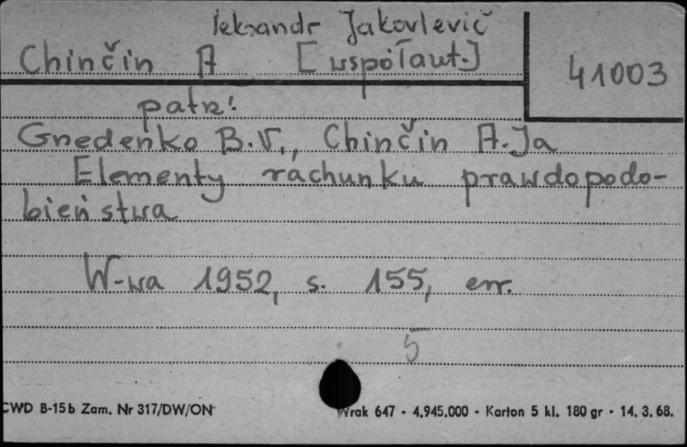 leksandr Jakovlevič
Chinčin A [współaut.]
41003
patrz:
Gnedenko B.V., Chinčin A.Ja
Elementy rachunku prawdopodo-
bieństwa
W-wa 1952, s. 155, err.
5
CWD B-15b Zam. Nr 317/DW/ON
Wrak 647 - 4.945.000 - Karton 5 kl. 180 gr - 14. 3. 68.